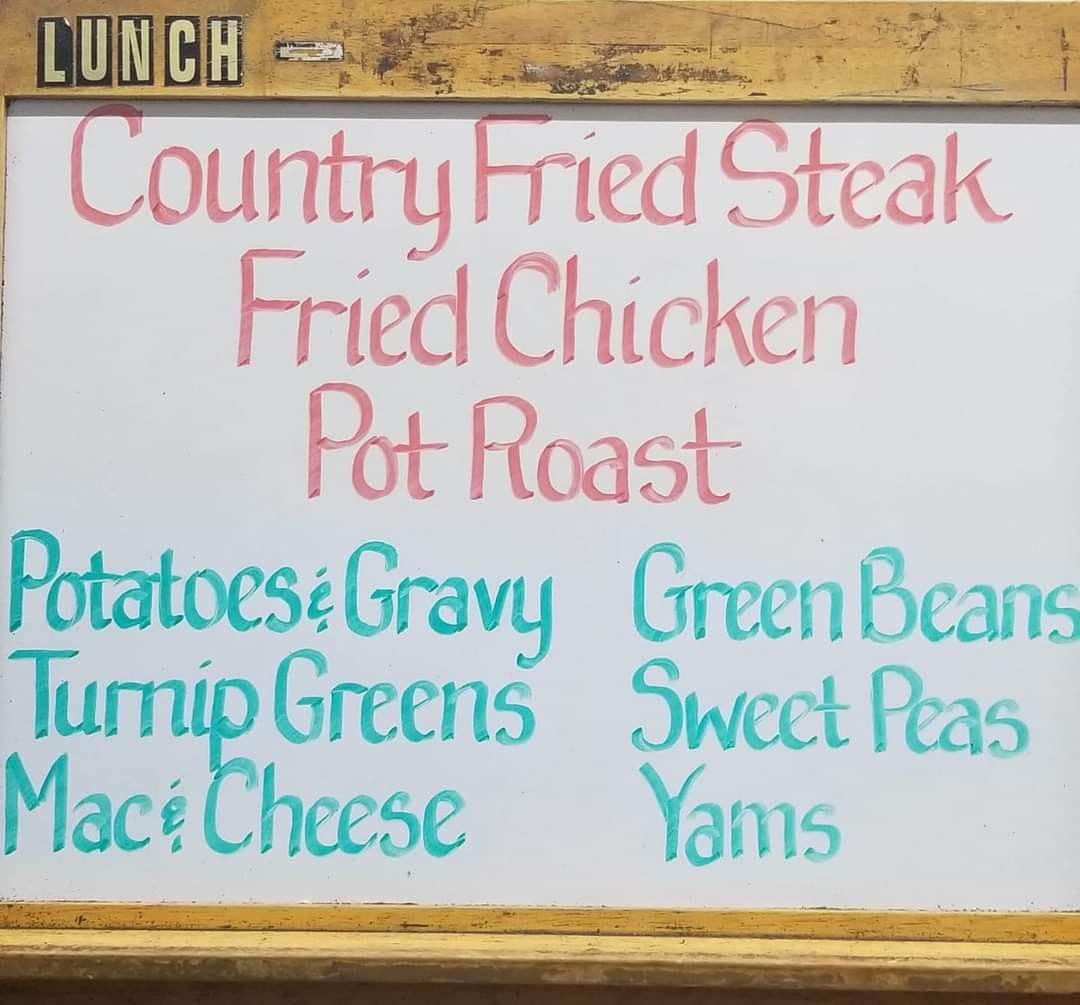 LUNCH
Country Fried Steak
Fried Chicken
Pot Roast
Potatoes & Gravy
Green Beans
Turnip Greens
Sweet Peas
Mac & Cheese
Yams